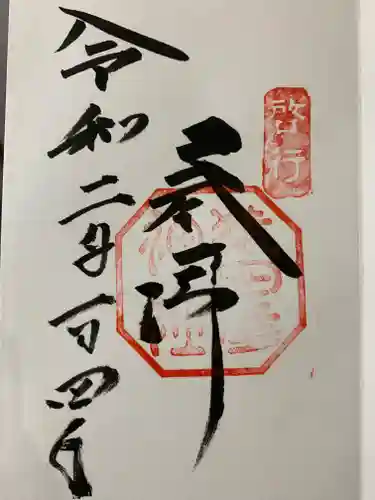 啓行
奉拝
令和二年一月四日